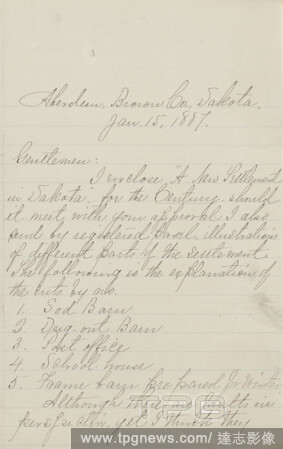 Aberdeen, Brown Co., Dakota.
Jan. 15, 1887.
Gentlemen:
I enclose "A New Settlement
in Dakota" for the Century should
it meet with your approval. I also
send by registered parcel, illustrations
of different parts of the settlement.
The following is the explanation of
the cuts by nos.
1. Sod Barn
2. Dug-out Barn
3. Post office
4. School house
5. Frame barn prepared for Winter
Although these are not in
perspective, yet I think they
TPG
www.tpgnews.com / 達志影像